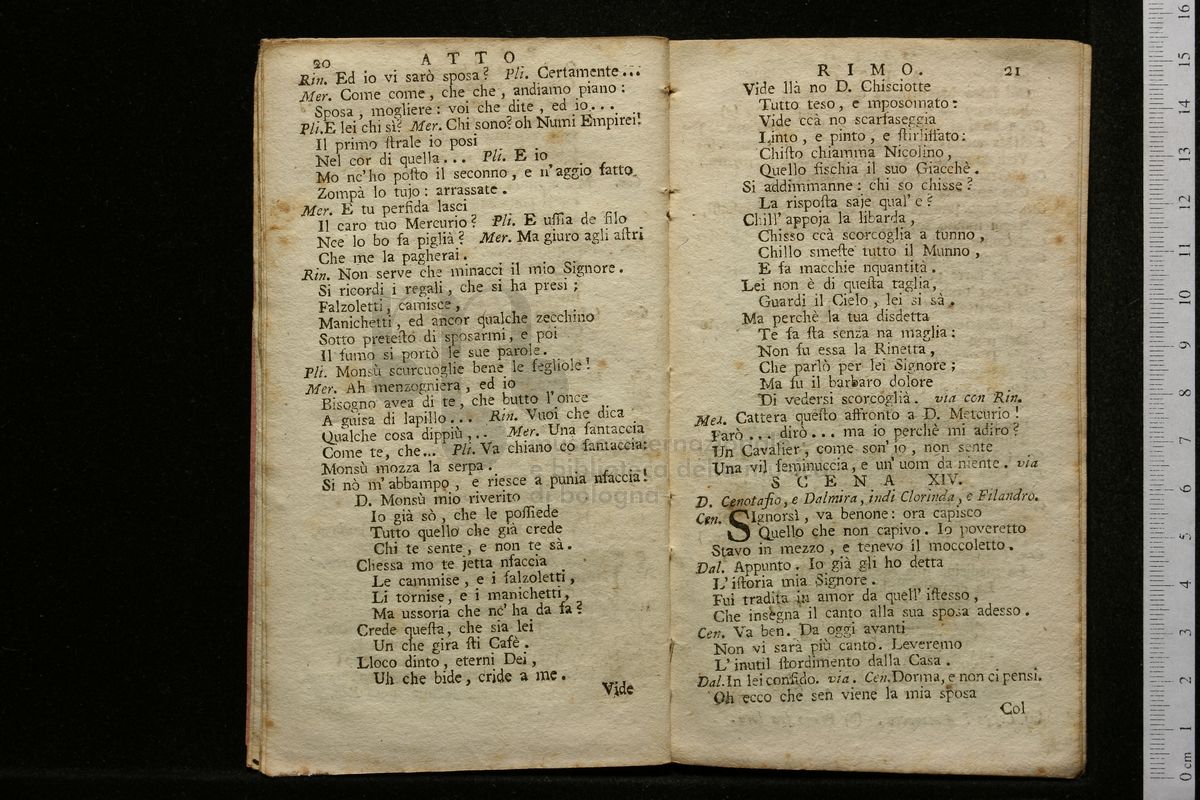 20 ATTO
Rin. Ed io vi sarò sposa? Pli. Certamente...
Mer. Come come, che che, andiamo piano:
Sposa, mogliere: voi che dite, ed io...
Pli.E lei chi sì? Mer. Chi sono? oh Numi Empirei!
Il primo ſtrale io posi
Nel cor di quella... Pli. E io
Mo nc'ho poſto il seconno, e n'aggio fatto
Zompà lo tujo: arrassate.
Mer. E tu perfida lasci
Il caro tuo Mercurio? Pli. E uſſia de filo
Nce lo bo fa piglià? Mer. Ma giuro agli aſtri
Che me la pagherai.
Rin. Non serve che minacci il mio Signore.
Si ricordi i regali, che si ha presi;
Falzoletti, camisce,
Manichetti, ed ancor qualche zecchino
Sotto preteſto di sposarmi, e poi
Il fumo si portò le sue parole.
Pli. Monsù scurcuoglie bene le fegliole!
Mer. Ah menzogniera, ed io
Bisogno avea di te, che butto l'once
A guisa di lapillo... Rin. Vuoi che dica
Qualche cosa dippiù,.. Mer. Una fantaccia
Come te, che... Pli. Va chiano co fantaccia:
Monsù mozza la serpa.
Si nò m'abbampo, e riesce a punia nfaccia!
D. Monsù mio riverito
Io già sò, che le poſſiede
Tutto quello che già crede
Chi te sente, e non te sà.
Chessa mo te jetta nfaccia
Le cammise, e i falzoletti,
Li tornise, e i manichetti,
Ma ussoria che nc'ha da fa?
Crede queſta, che sia lei
Un che gira ſti Cafè.
Lloco dinto, eterni Dei,
Uh che bide, cride a me.
Vide
RIMO. 21
Vide llà no D. Chisciotte
Tutto teso, e mposomato:
Vide ccà no scarfaseggia
Linto, e pinto, e ſtirliſſato:
Chiſto chiamma Nicolino,
Quello fischia il suo Giacchè.
Si addimmanne: chi so chisse?
La rispoſta saje qual'e?
Chill' appoja la libarda,
Chisso ccà scorcoglia a tunno,
Chillo smeſte tutto il Munno,
E fa macchie nquantità.
Lei non è di queſta taglia,
Guardi il Cielo, lei si sà.
Ma perchè la tua disdetta
Te fa ſta senza na maglia:
Non fu essa la Rinetta,
Che parlò per lei Signore;
Ma fu il barbaro dolore
Di vedersi scorcoglià. via con Rin.
Mer. Cattera queſto affronto a D. Mercurio!
Farò... dirò... ma io perchè mi adiro?
Un Cavalier, come son' io, non sente
Una vil feminuccia, e un' uom da niente. via
SCENA XIV.
D. Cenotafio, e Dalmira, indi Clorinda, e Filandro.
Cen. SIgnorsì, va benone: ora capisco
Quello che non capivo. Io poveretto
Stavo in mezzo, e tenevo il moccoletto.
Dal. Appunto. Io già gli ho detta
L'iſtoria mia Signore.
Fui tradita in amor da quell' iſtesso,
Che insegna il canto alla sua sposa adesso.
Cen. Va ben. Da oggi avanti
Non vi sarà più canto. Leveremo
L' inutil ſtordimento dalla Casa.
Dal.In lei confido. via. Cen.Dorma, e non ci pensi.
Oh ecco che sen viene la mia sposa
Col